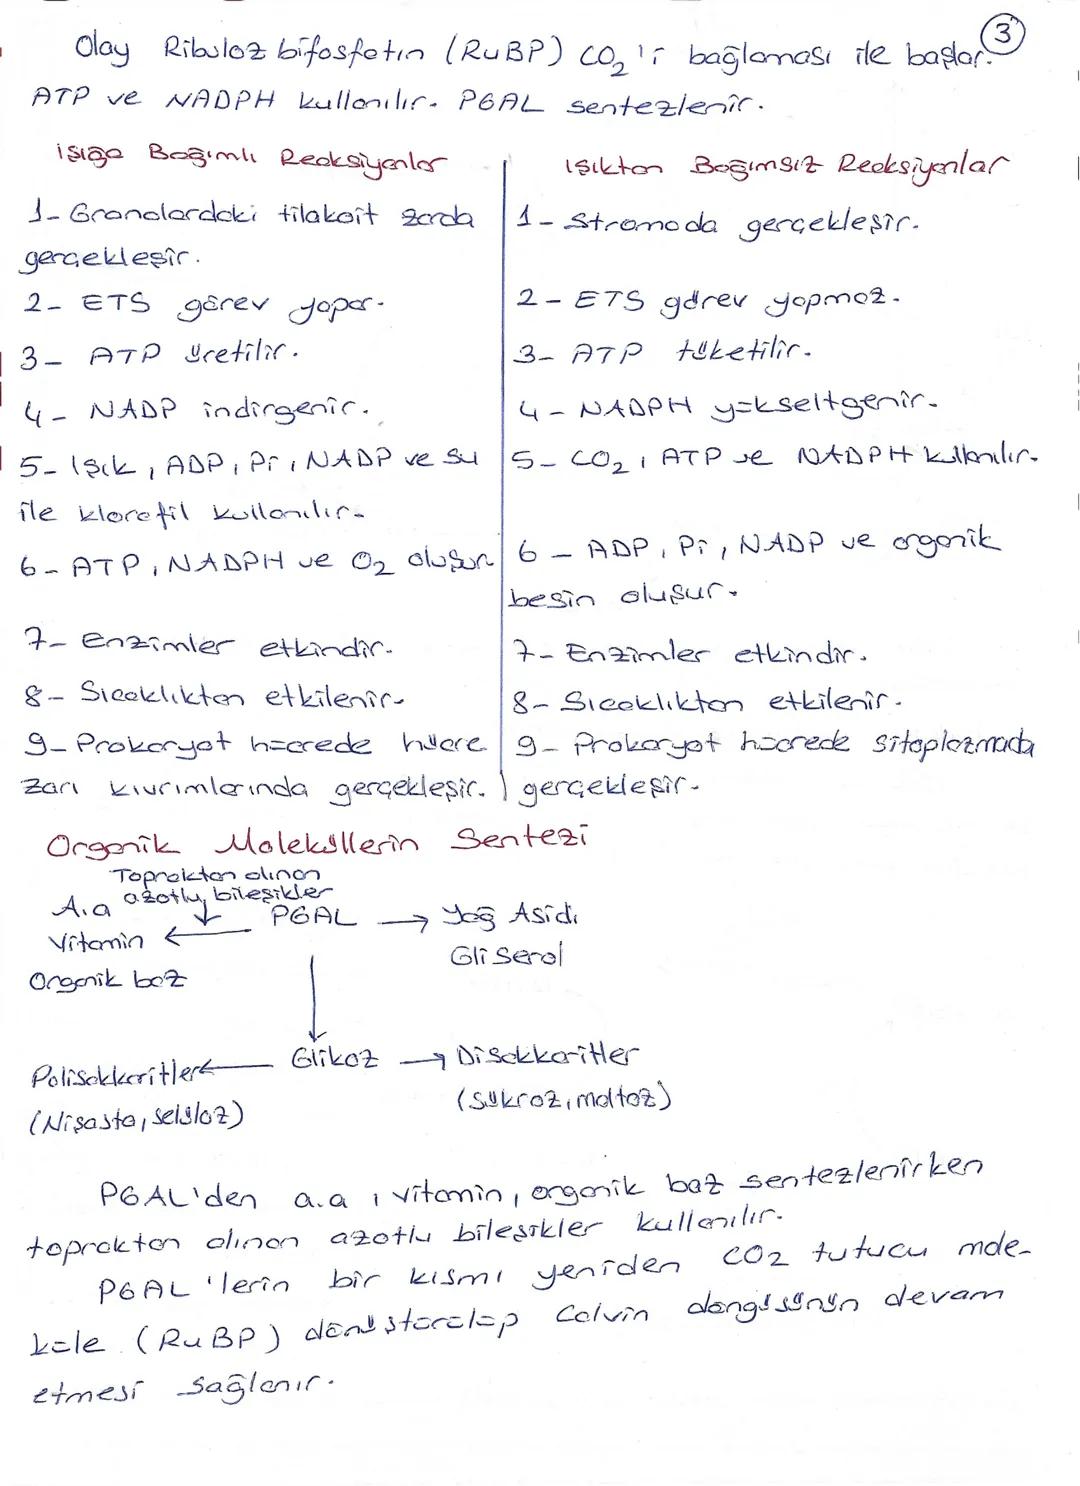 3
Olay Ribuloz bifosfatın (RuBP) CO₂'i bağlaması ile başlar.
ATP ve NADPH kullanılır. PGAL sentezlenir.
ışığa Bağımlı Reaksiyonlar
1- Granalardaki tilakoit zarda
gerçekleşir.
2- ETS görev yapar.
3- ATP üretilir.
4- NADP indirgenir.
5- Işık, ADP, Pi, NADP ve su
ile klorofil kullanılır.
6- ATP, NADPH ve O₂ oluşur
7- Enzimler etkindir.
8- Sıcaklıktan etkilenir.
9- Prokaryot hücrede hücre
zarı kıvrımlarında gerçekleşir.
Işıktan Bağımsız Reaksiyonlar
1- Stromada gerçekleşir.
2- ETS görev yapmaz.
3- ATP tüketilir.
4- NADPH yükseltgenir.
5- CO₂, ATP ve NADPH kullanılır.
6- ADP, Pi, NADP ve organik
besin oluşur.
7- Enzimler etkindir.
8- Sıcaklıktan etkilenir.
9- Prokaryot hücrede sitoplazmada
gerçekleşir.
Organik Moleküllerin Sentezi
Topraktan alınan
azotlu bileşikler
A.a
Vitamin ← PGAL → Yağ Asidi
Gliserol
Organik baz
↓
Polisakkaritler ← Glikoz → Disakkaritler
(Nişasta, selüloz) (Sükroz, maltoz)
PGAL'den a.a, vitamin, organik baz sentezlenirken
topraktan alınan azotlu bileşikler kullanılır.
PGAL'lerin bir kısmı yeniden CO2 tutucu mole-
küle (RuBP) dönüştürülüp Calvin döngüsünün devam
etmesi sağlanır.